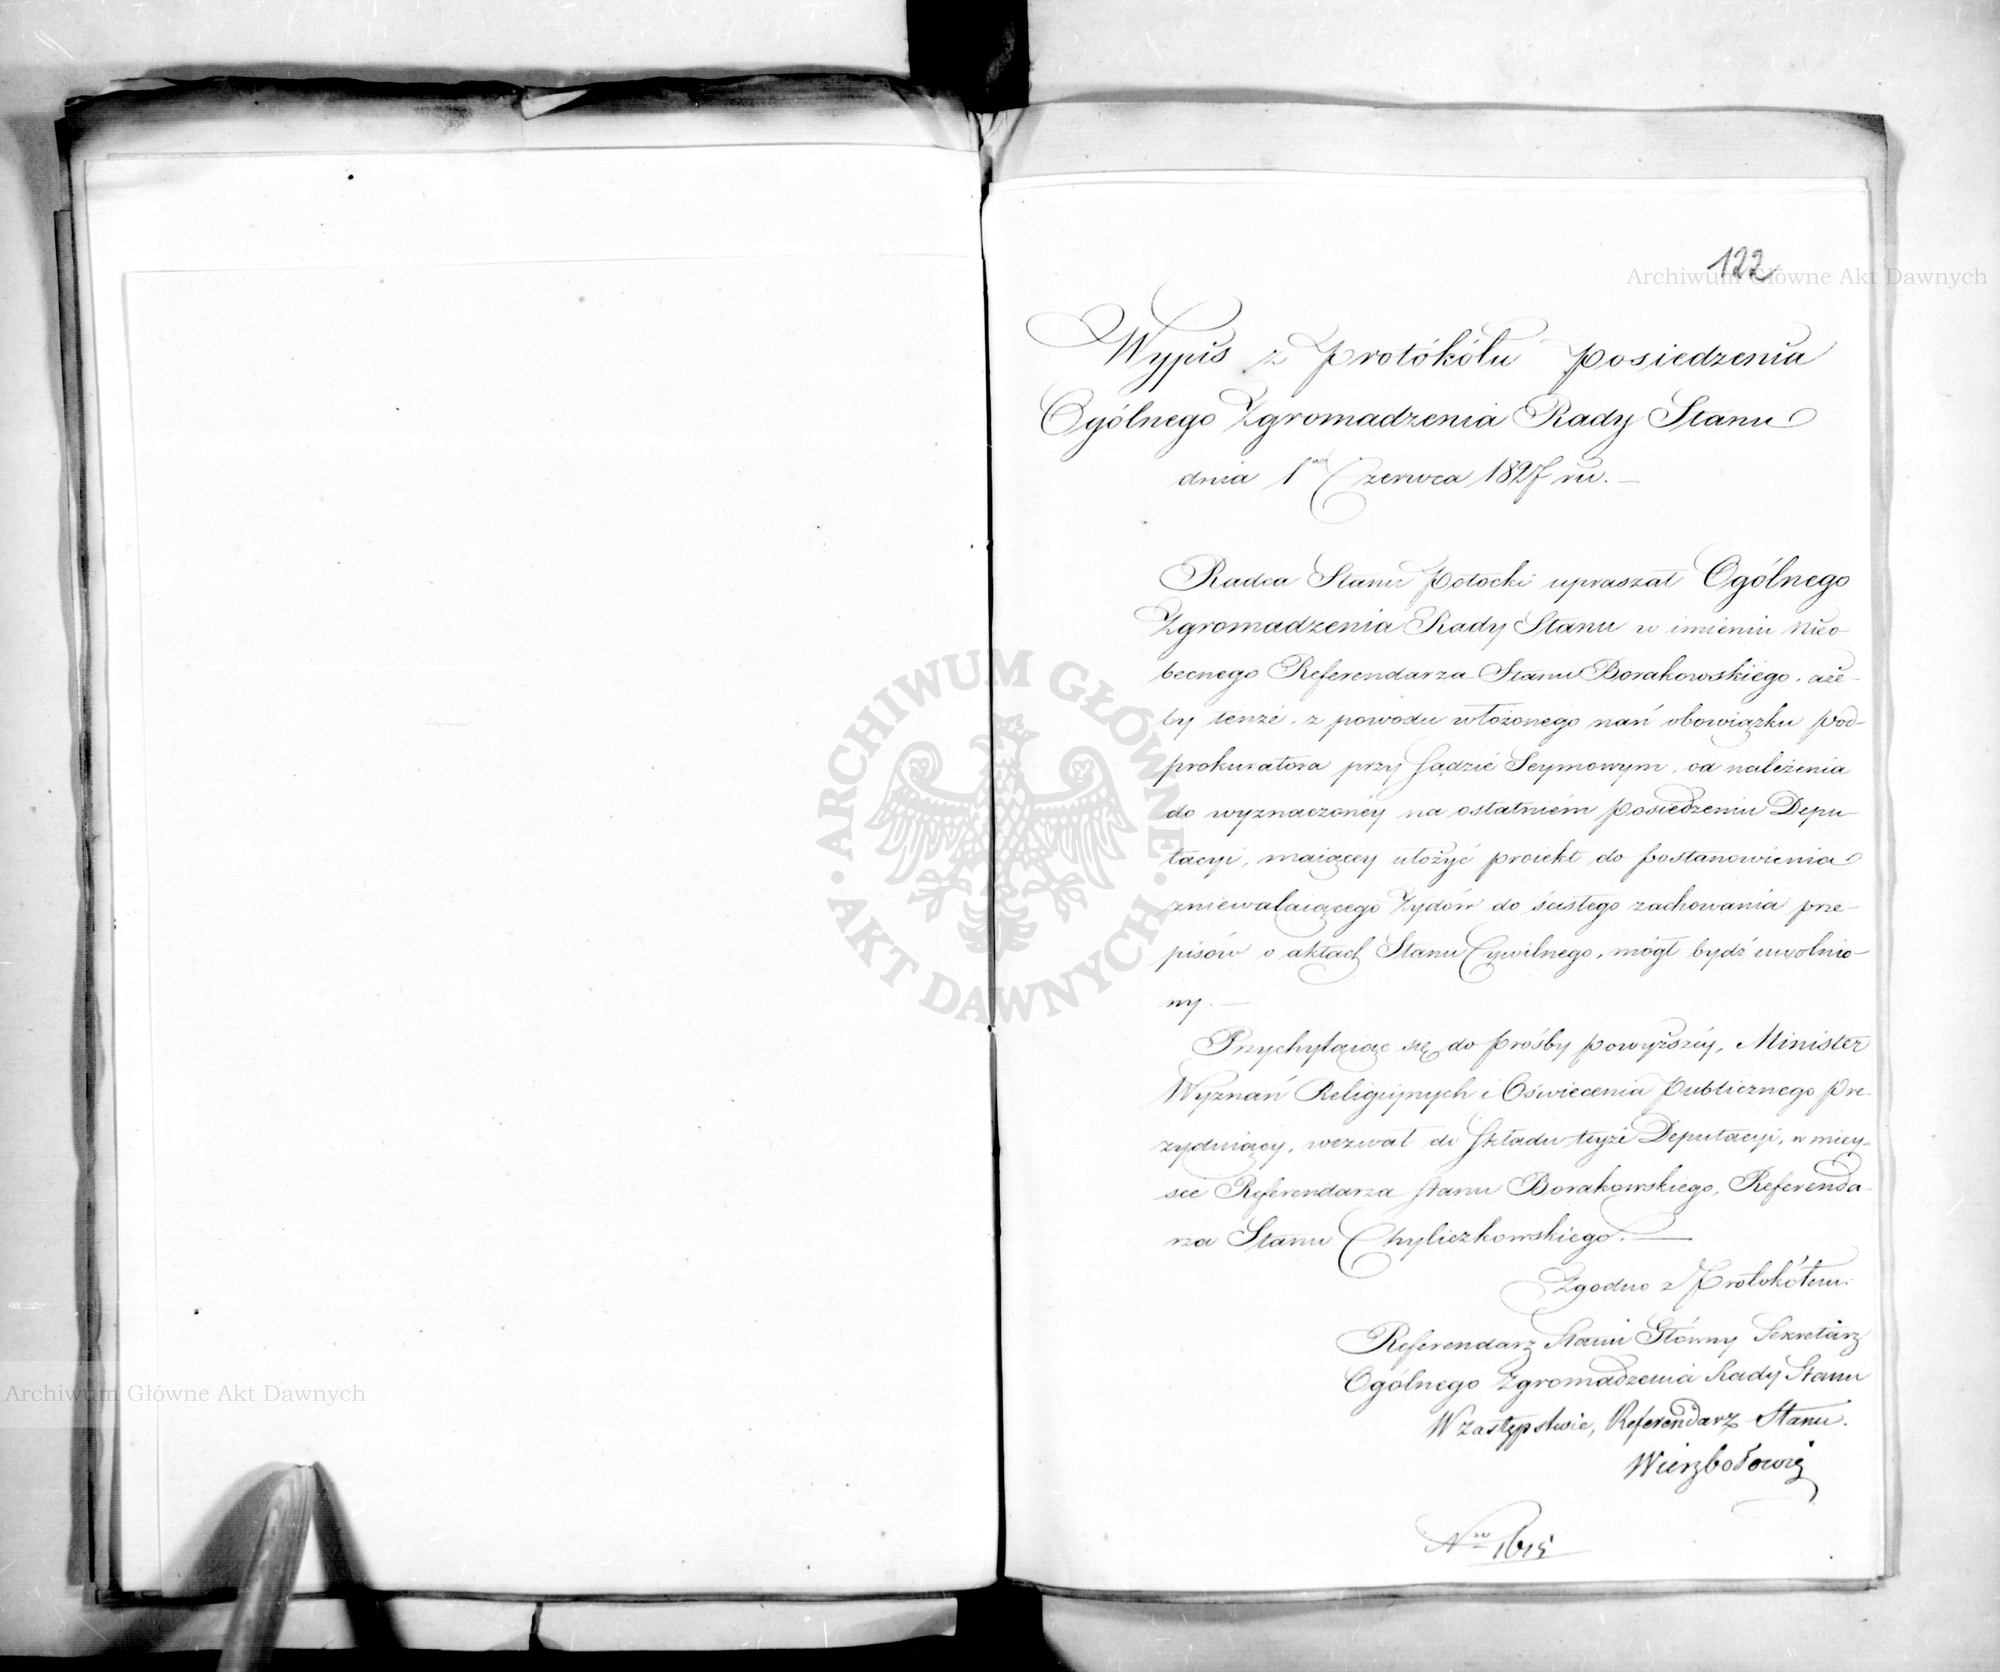 122
Archiwum Główne Akt Dawnych
Wypis z Protokółu Posiedzenia
Ogólnego Zgromadzenia Rady Stanu
dnia 1 Czerwca 1827 ru. —
Radca Stanu Potocki upraszał Ogólnego
Zgromadzenia Rady Stanu w imieniu Nieo-
becnego Referendarza Stanu Borakowskiego, aże-
by tenże, z powodu włożonego nań obowiązku Pod-
prokuratora przy Sądzie Seymowym, od należenia
do wyznaczonéy na ostatniém Posiedzeniu Depu-
tacyi, maiącey ułożyć proiekt do Postanowienia
zniewalaiącego Żydów do ścisłego zachowania prze-
pisów o aktach Stanu Cywilnego, mógł bydź uwolnio-
ny. —
Przychylaiąc się do prośby powyższéy, Minister
Wyznań Religiynych i Oświecenia Publicznego Pre-
zyduiący, wezwał do składu teyże Deputacyi, w miey-
sce Referendarza Stanu Borakowskiego, Referenda-
rza Stanu Chyliczkowskiego. —
Zgodno z Protokółem:
Referendarz Stanu Główny Sekretarz
Ogólnego Zgromadzenia Rady Stanu
W Zastępstwie, Referendarz Stanu.
Wierzbołowicz
Nro 1615
ARCHIWUM GŁÓWNE
AKT DAWNYCH
Archiwum Główne Akt Dawnych